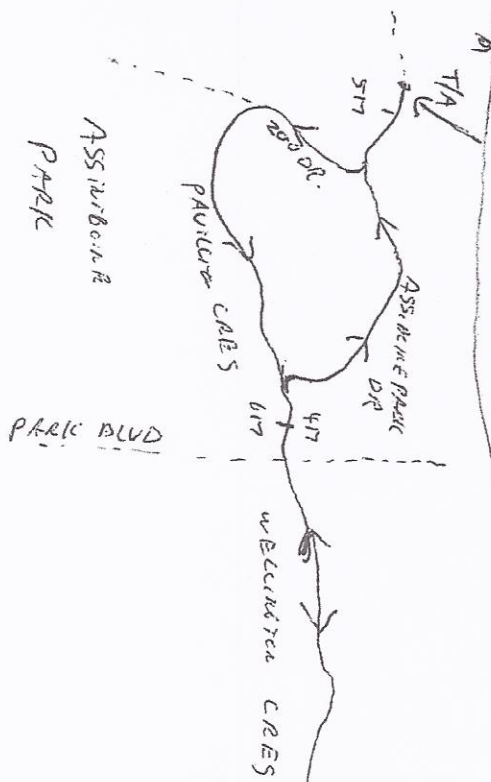 T/A
517
ZOO DR.
ASSINIBOINE
PARK
PAVILLION CRES
ASSINIBOINE PARK
DR
417
617
PARK BLVD
WELLINGTON CRES